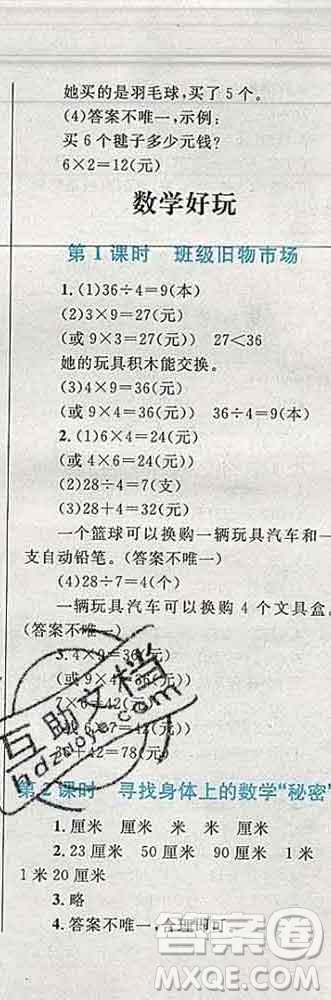 她买的是羽毛球，买了5个。
(4)答案不唯一，示例：
买6个毽子多少元钱？
6×2=12(元)
数学好玩
第1课时 班级旧物市场
1. (1)36÷4=9(本)
(2)3×9=27(元)
(或9×3=27(元)) 27<36
她的玩具积木能交换。
(3)4×9=36(元)
(或9×4=36(元)) 36÷4=9(本)
2. (1)6×4=24(元)
(或4×6=24(元))
(2)28÷4=7(支)
(3)28÷4=7(元)
一个篮球可以换购一辆玩具汽车和一
支自动铅笔。(答案不唯一)
(4)28÷7=4(个)
一辆玩具汽车可以换购4个文具盒。
(答案不唯一)
3. 4×9=36(元)
(或9×4=36(元))
7×6=42(元)
(或6×7=42(元))
36+42=78(元)
第2课时 寻找身体上的数学“秘密”
1. 厘米 厘米 米 米 厘米
2. 23厘米 50厘米 90厘米 1米
1米20厘米
3. 略
4. 答案不唯一，合理即可
互助文档
hdzuoye.com
答案圈
MXQE.COM